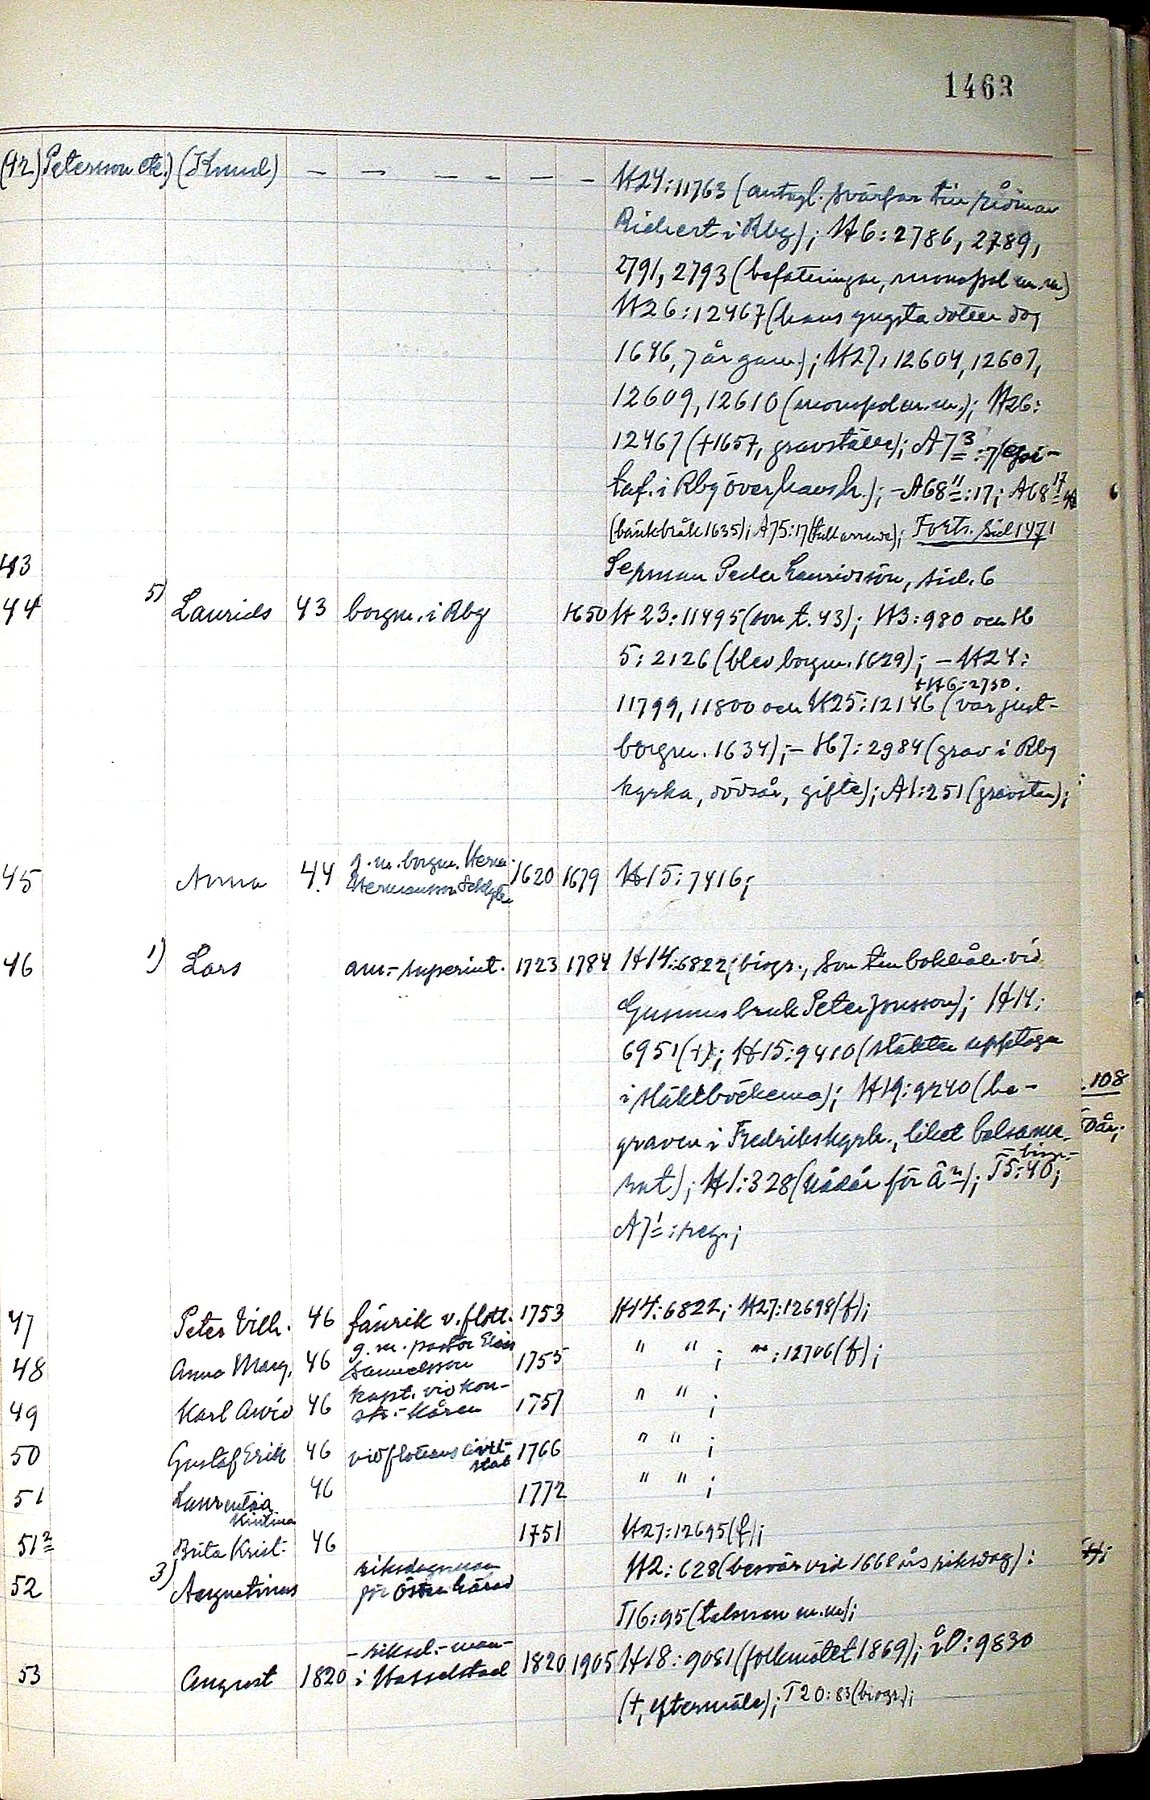 1463
(42) Petersson etc.) (Knud) — — — — — — H24:11763 (antagl. svärfar till rådman
Richert i Rbg); H6:2786, 2789,
2791, 2793 (befattningar, monopol m.m)
H26:12467 (hans yngsta dotter dog
1646, 7 år gam.); H27:12604, 12607,
12609, 12610 (monopol m.m.); H26:
12467 (†1657, gravställe); A7 3:7 (epi-
taf. i Rbg över hans h.); – A68 11:17; A68 17
(bänkbråk 1635); A75:17 (tullarrende); Forts. sid 1471
43 Seprman Peder Lauridsson, sid. 6
44 5) Laurids 43 borgm. i Rbg 1650 H23:11495 (son t. 43); H3:980 och H
5:2126 (blev borgm. 1629); – H24:
+H6:2730.
11799, 11800 och H25:12146 (var just-
borgm. 1634); – H7:2984 (grav i Rbg
kyrka, dödsår, gifte); A1:251 (gravsten);
45 Anna 44 g. m. borgm. Herm.
Hermansson Schlyter 1620 1679 H15:7416;
46 1) Lars am:-superint. 1723 1784 H14:6822 (biogr., son till bokhåll. vid
Gusums bruk Peter Jonsson); H14:
6951 (†); H15:9410 (släkten upptagen
i släktböckerna); H19:9240 (be-
. 108
graven i Fredrikskyrk., liket balsame-
Dår;
– biogr.–
rat); H1:328 (hädár för Ån); T5:40;
A7 1:reg.;
47 Peter Vilh. 46 fänrik v. flott. 1753 H14:6822; H27:12698 (f);
48 Anna Marg. 46 g. m. pastor Elias
Samuelsson 1755 " " ; " :12706 (f);
49 Karl Arvid 46 kapt. vid kon-
str.-kåren 1757 " " ;
50 Gustaf Erik 46 vid flottans civil-
stat 1766 " " ;
51 Laurentia
Kristina 46 1772 " " ;
51 2 Brita Krist. 46 1751 H27:12695 (f);
52 3) Augustinus riksdagsman
för Östra härad H2:628 (besvär vid 1668 års riksdag):
H;
T16:95 (talman m.m);
53 August 1820 – riksd.-man –
i Hasselstad 1820 1905 H18:9081 (folkmötet 1869); åD:9830
(†, eftermäle); T20:83 (biogr);